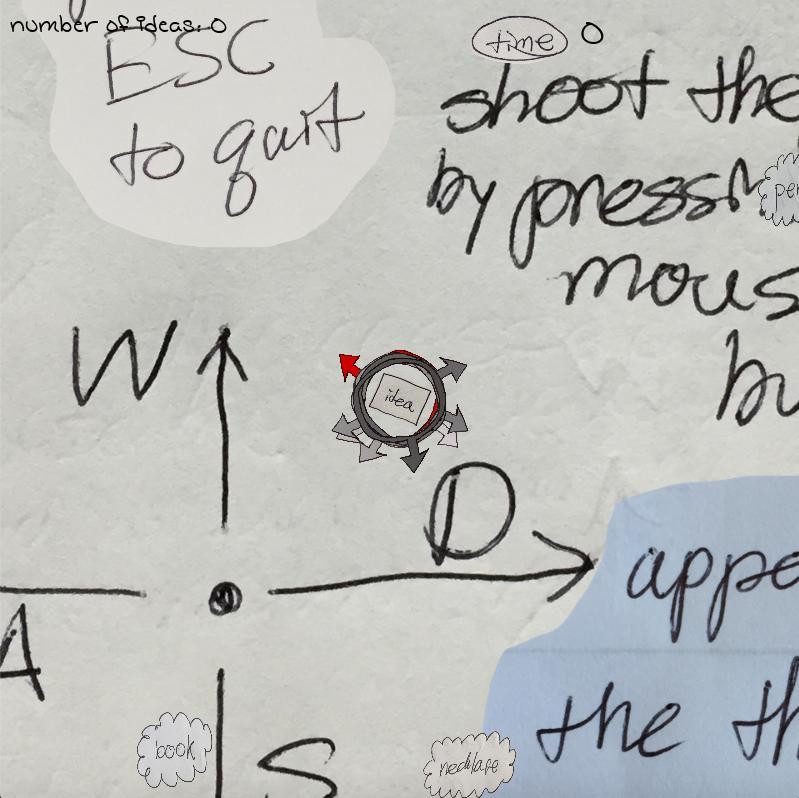 number of ideas: 0
time 0
ESC
to quit
shoot the
by press
mous
by
W
idea
D
appe
A
the th
book
necklace
S